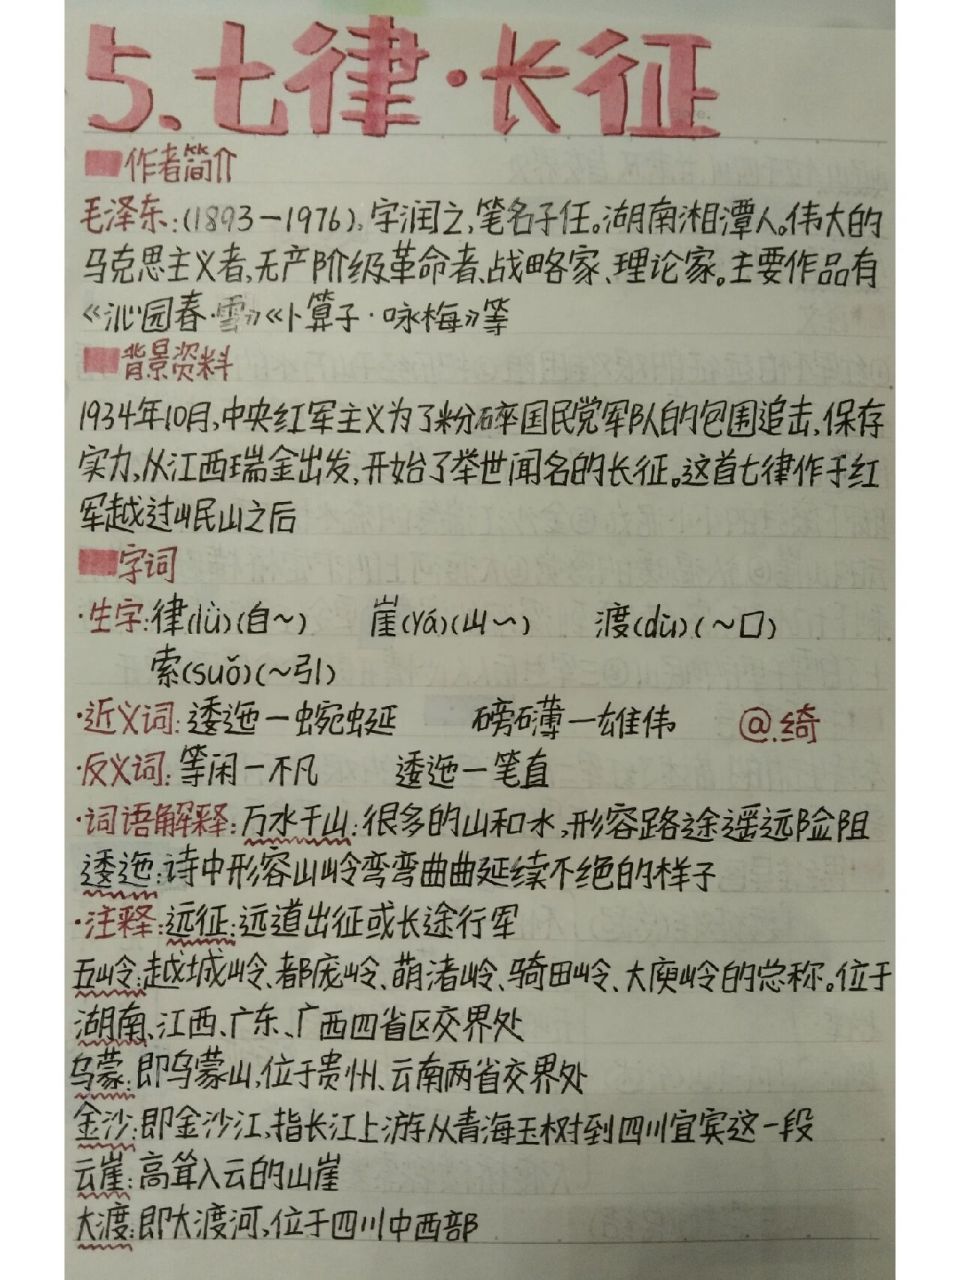 5、七律·长征
作者简介
毛泽东:(1893-1976),字润之,笔名子任。湖南湘潭人。伟大的
马克思主义者,无产阶级革命者、战略家、理论家。主要作品有
《沁园春·雪》《卜算子·咏梅》等
背景资料
1934年10月,中央红军主义为了粉碎国民党军队的包围追击,保存
实力,从江西瑞金出发,开始了举世闻名的长征。这首七律作于红
军越过岷山之后
字词
·生字:律(lǜ)(自~) 崖(yá)(山~) 渡(dù)(~口)
索(suǒ)(~引)
·近义词:逶迤—蜿蜒 磅礴—雄伟 @.绮
·反义词:等闲—不凡 逶迤—笔直
·词语解释:万水千山:很多的山和水,形容路途遥远险阻
逶迤:诗中形容山岭弯弯曲曲延续不绝的样子
·注释:远征:远道出征或长途行军
五岭:越城岭、都庞岭、萌渚岭、骑田岭、大庾岭的总称。位于
湖南、江西、广东、广西四省区交界处
乌蒙:即乌蒙山,位于贵州、云南两省交界处
金沙:即金沙江,指长江上游从青海玉树到四川宜宾这一段
云崖:高耸入云的山崖
大渡:即大渡河,位于四川中西部